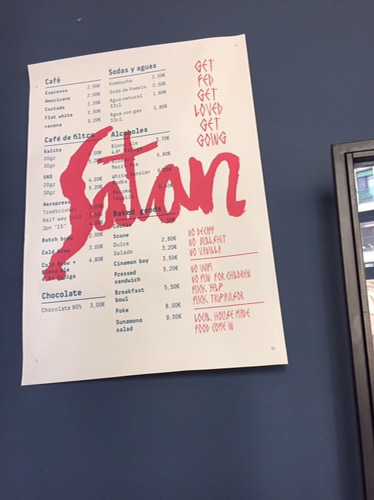 Café
Espresso 2,00€
Americano 2,00€
Cortado 2,20€
Flat white 2,50€
+avena 0,20€
Café de filtro
Kalita
20gr
30gr 5,20€
V60
20gr 4,00€
30gr 5,20€
Aeropress
Tradicional
Half way
Jpn "15"
Batch brew 2,00€
Cold brew 3,00€
Cold Brew + 4,80€
Chocolate
Chocolate 80% 3,00€
Sodas y aguas
Kombucha 2,50€
Soda de Pomelo 2,50€
Agua natural 1,80€
33cl
Agua con gas 1,80€
33cl
Alcoholes
2,70€
5,80€
White Russian
Baked goods
Cookie
Scone
Dulce 2,80€
Salado 3,20€
Cinamon boy 3,50€
Pressed 5,20€
sandwich
Breakfast 5,50€
bowl
Poke 8,00€
Sunamono 8,00€
salad
Satan
GET
FED
GET
LOVED
GET
GOING
NO DECAFF
NO BULLSHIT
NO VANILLA
NO WIFI
NO FUN FOR CHILDREN
FUCK YELP
FUCK TRIPAVISOR
LOCAL HOUSE MADE
FOOD COME IN